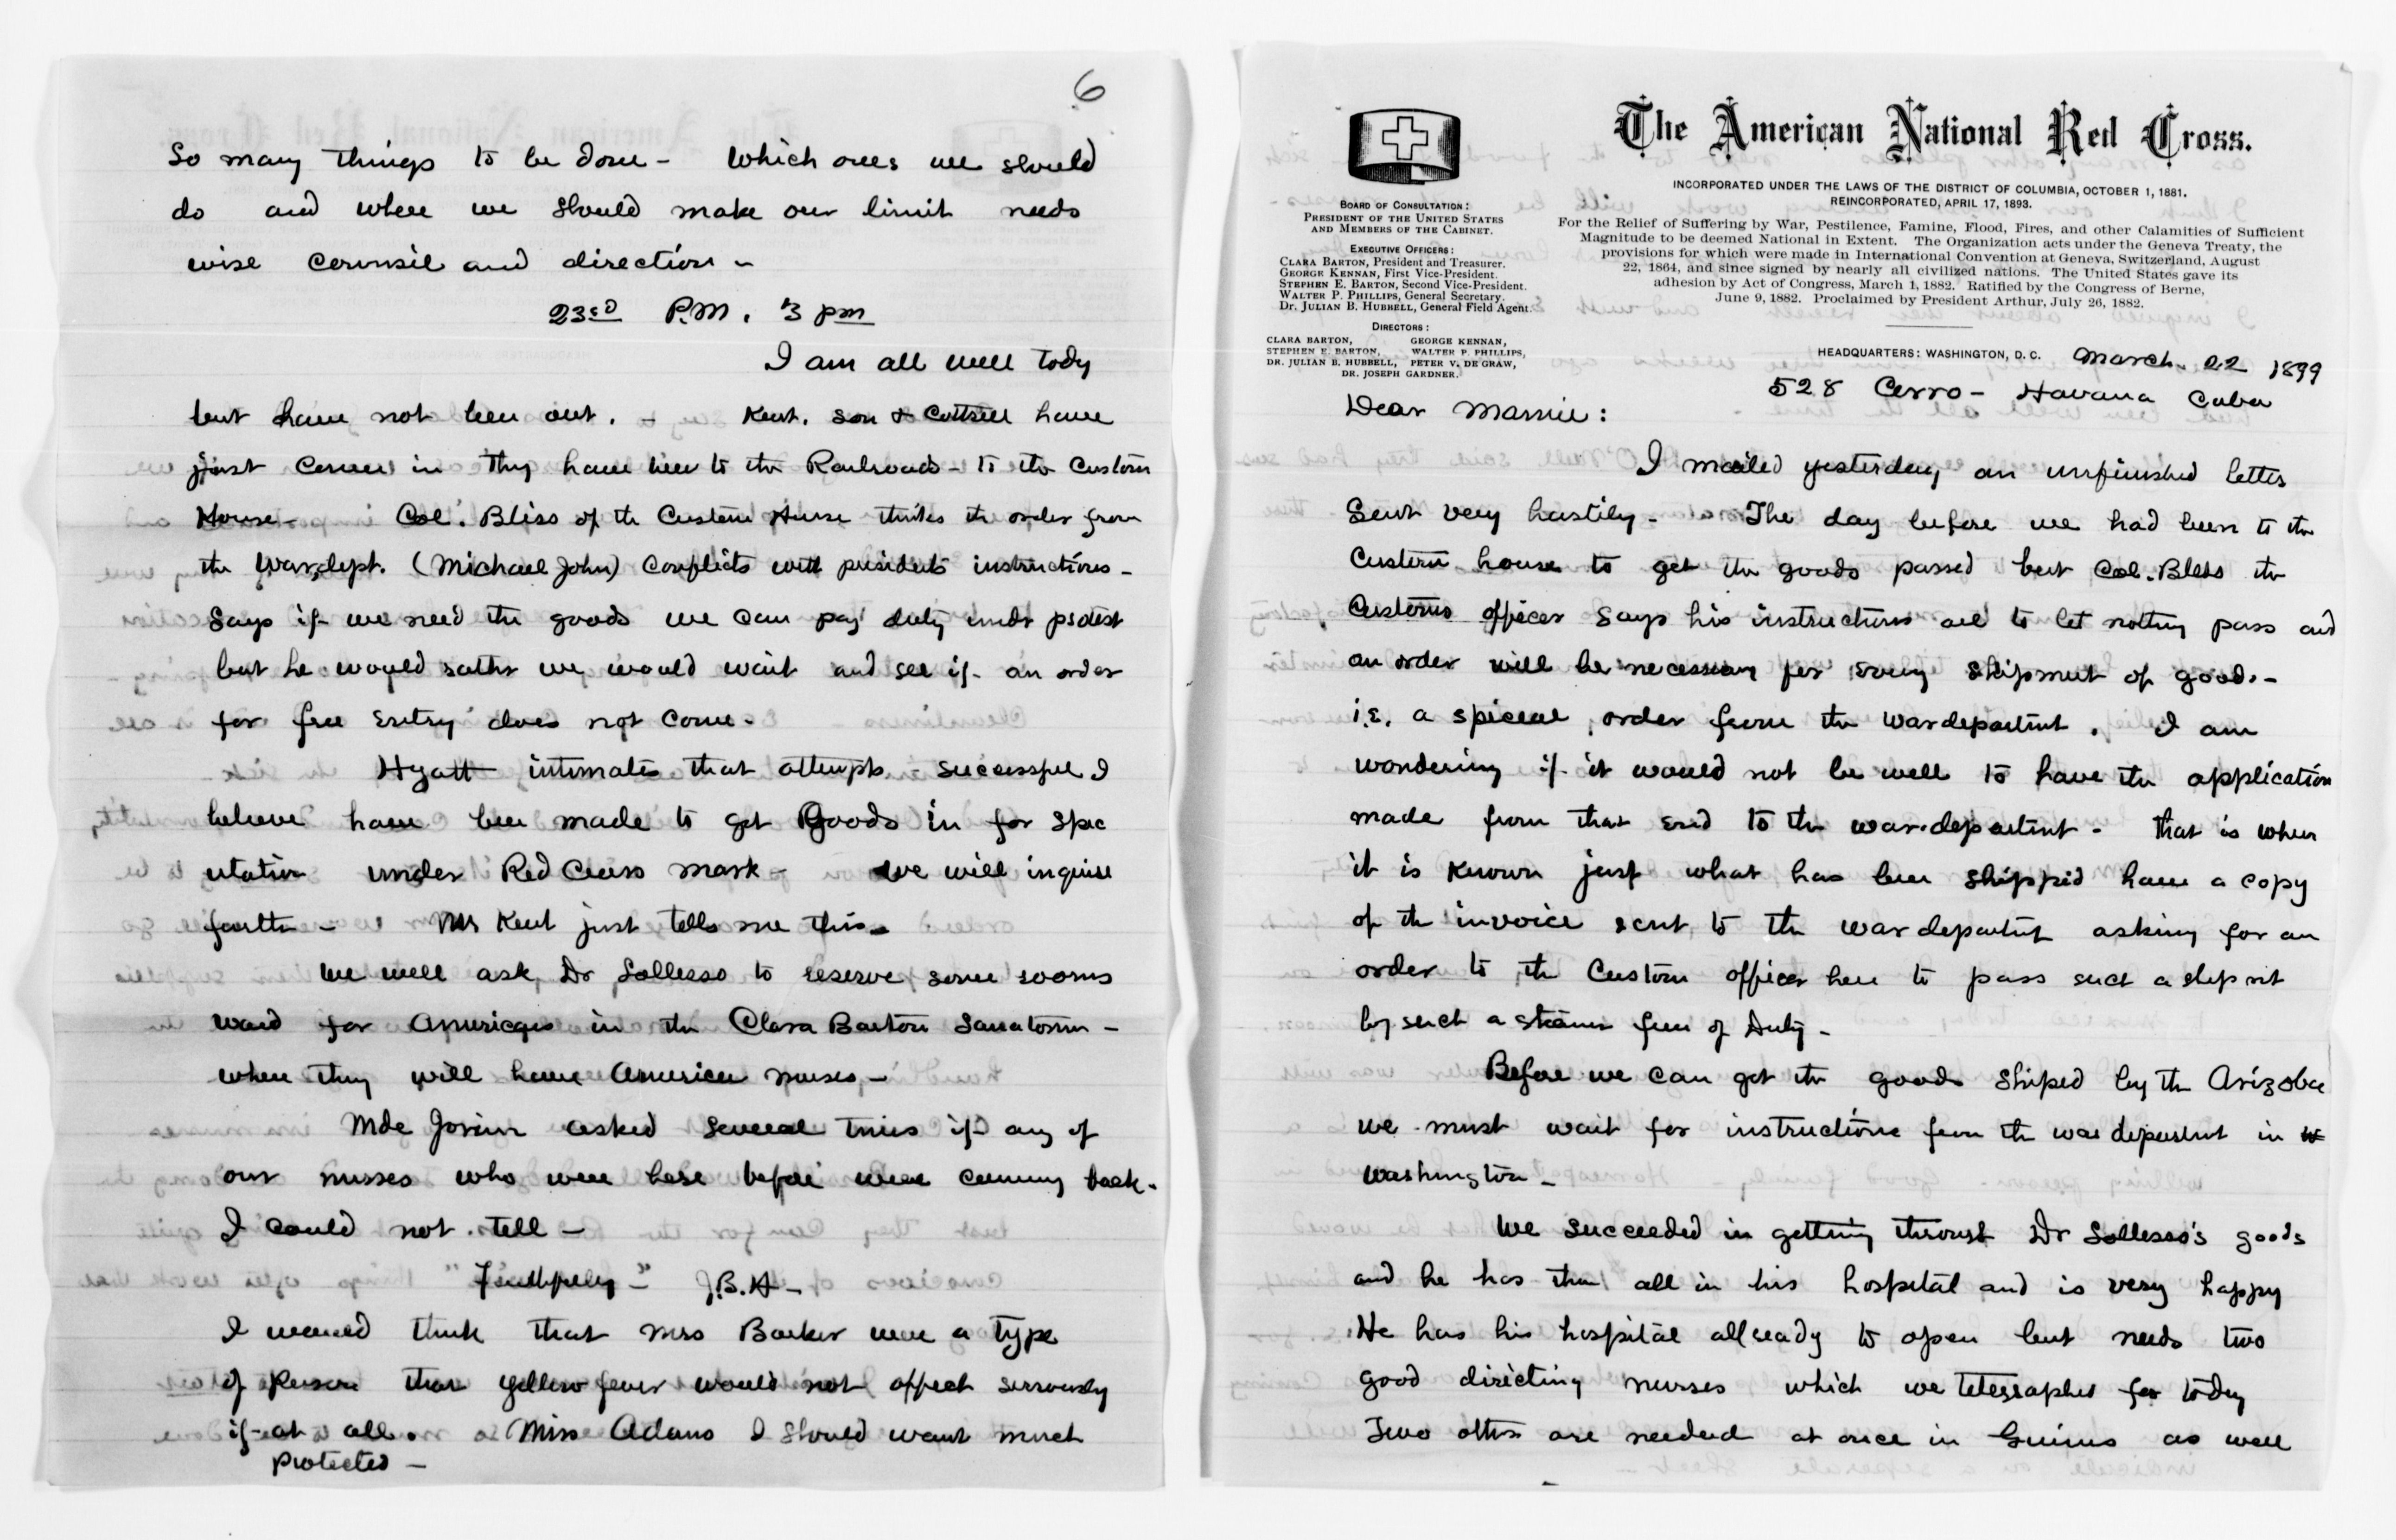 6
So many things to be done - Which ones we should
do and where we should make our limit needs
wise counsil and direction -
23rd P.M. 3 pm
I am all well tody
but have not been out. - Kent. son & Cottrell have
just come in They have been to the Railroads - to the Custom
House - Col. Bliss of the Custom House thinks the order from
the War dept. (Michael John) conflicts with presidents instructions -
Says if we need the goods we can pay duty under protest
but he would rather we would wait and see if an order
for free entry does not come -
Hyatt intimates that attempts - successful I
believe have been made to get Goods in for spec
ulation under Red Cross mark - we will inquire
further - Mr Kent just tells me this -
We will ask Dr Sollosso to reserve some rooms
ward for Americans in the Clara Barton Sanatorium -
where they will have American nurses -
Mde Jorrin asked several times if any of
our nurses who were here before were coming back -
I could not tell -
"Faithfully" - J.B.H -
I would think that Mrs Barker were a type
of Person that yellow fever would not affect seriously
if at all. Miss Adams I should want much
protected -
The American National Red Cross.
INCORPORATED UNDER THE LAWS OF THE DISTRICT OF COLUMBIA, OCTOBER 1, 1881.
REINCORPORATED, APRIL 17, 1893.
For the Relief of Suffering by War, Pestilence, Famine, Flood, Fires, and other Calamities of Sufficient
Magnitude to be deemed National in Extent. The Organization acts under the Geneva Treaty, the
provisions for which were made in International Convention at Geneva, Switzerland, August
22, 1864, and since signed by nearly all civilized nations. The United States gave its
adhesion by Act of Congress, March 1, 1882. Ratified by the Congress of Berne,
June 9, 1882. Proclaimed by President Arthur, July 26, 1882.
BOARD OF CONSULTATION:
PRESIDENT OF THE UNITED STATES
AND MEMBERS OF THE CABINET.
EXECUTIVE OFFICERS:
CLARA BARTON, President and Treasurer.
GEORGE KENNAN, First Vice-President.
STEPHEN E. BARTON, Second Vice-President.
WALTER P. PHILLIPS, General Secretary.
Dr. JULIAN B. HUBBELL, General Field Agent.
DIRECTORS:
CLARA BARTON, GEORGE KENNAN,
STEPHEN E. BARTON, WALTER P. PHILLIPS,
DR. JULIAN B. HUBBELL, PETER V. DE GRAW,
DR. JOSEPH GARDNER.
HEADQUARTERS: WASHINGTON, D. C. March. 22 1899
528 Cerro - Havana Cuba
Dear Mamie:
I mailed yesterday an unfinished letter
Sent very hastily - The day before we had been to the
Custom house to get the goods passed but Col. Bliss the
Customs officer says his instructions are to let nothing pass and
an order will be necessary for every shipment of goods. -
i.e. a special order from the War department. I am
wondering if it would not be well to have the application
made from that end to the war-department - that is when
it is known just what has been shipped have a copy
of the invoice sent to the war department asking for an
order to the Custom officer here to pass such a shipmt
by such a steamer free of Duty -
Before we can get the goods shiped by the
we must wait for instructions from the war department in
Washington -
We succeeded in getting through Dr Sollosso's goods
and he has them all in his hospital and is very happy
He has his hospital allready to open but needs two
good directing nurses which we telegraphed for tody
Two others are needed at once in Guines as well